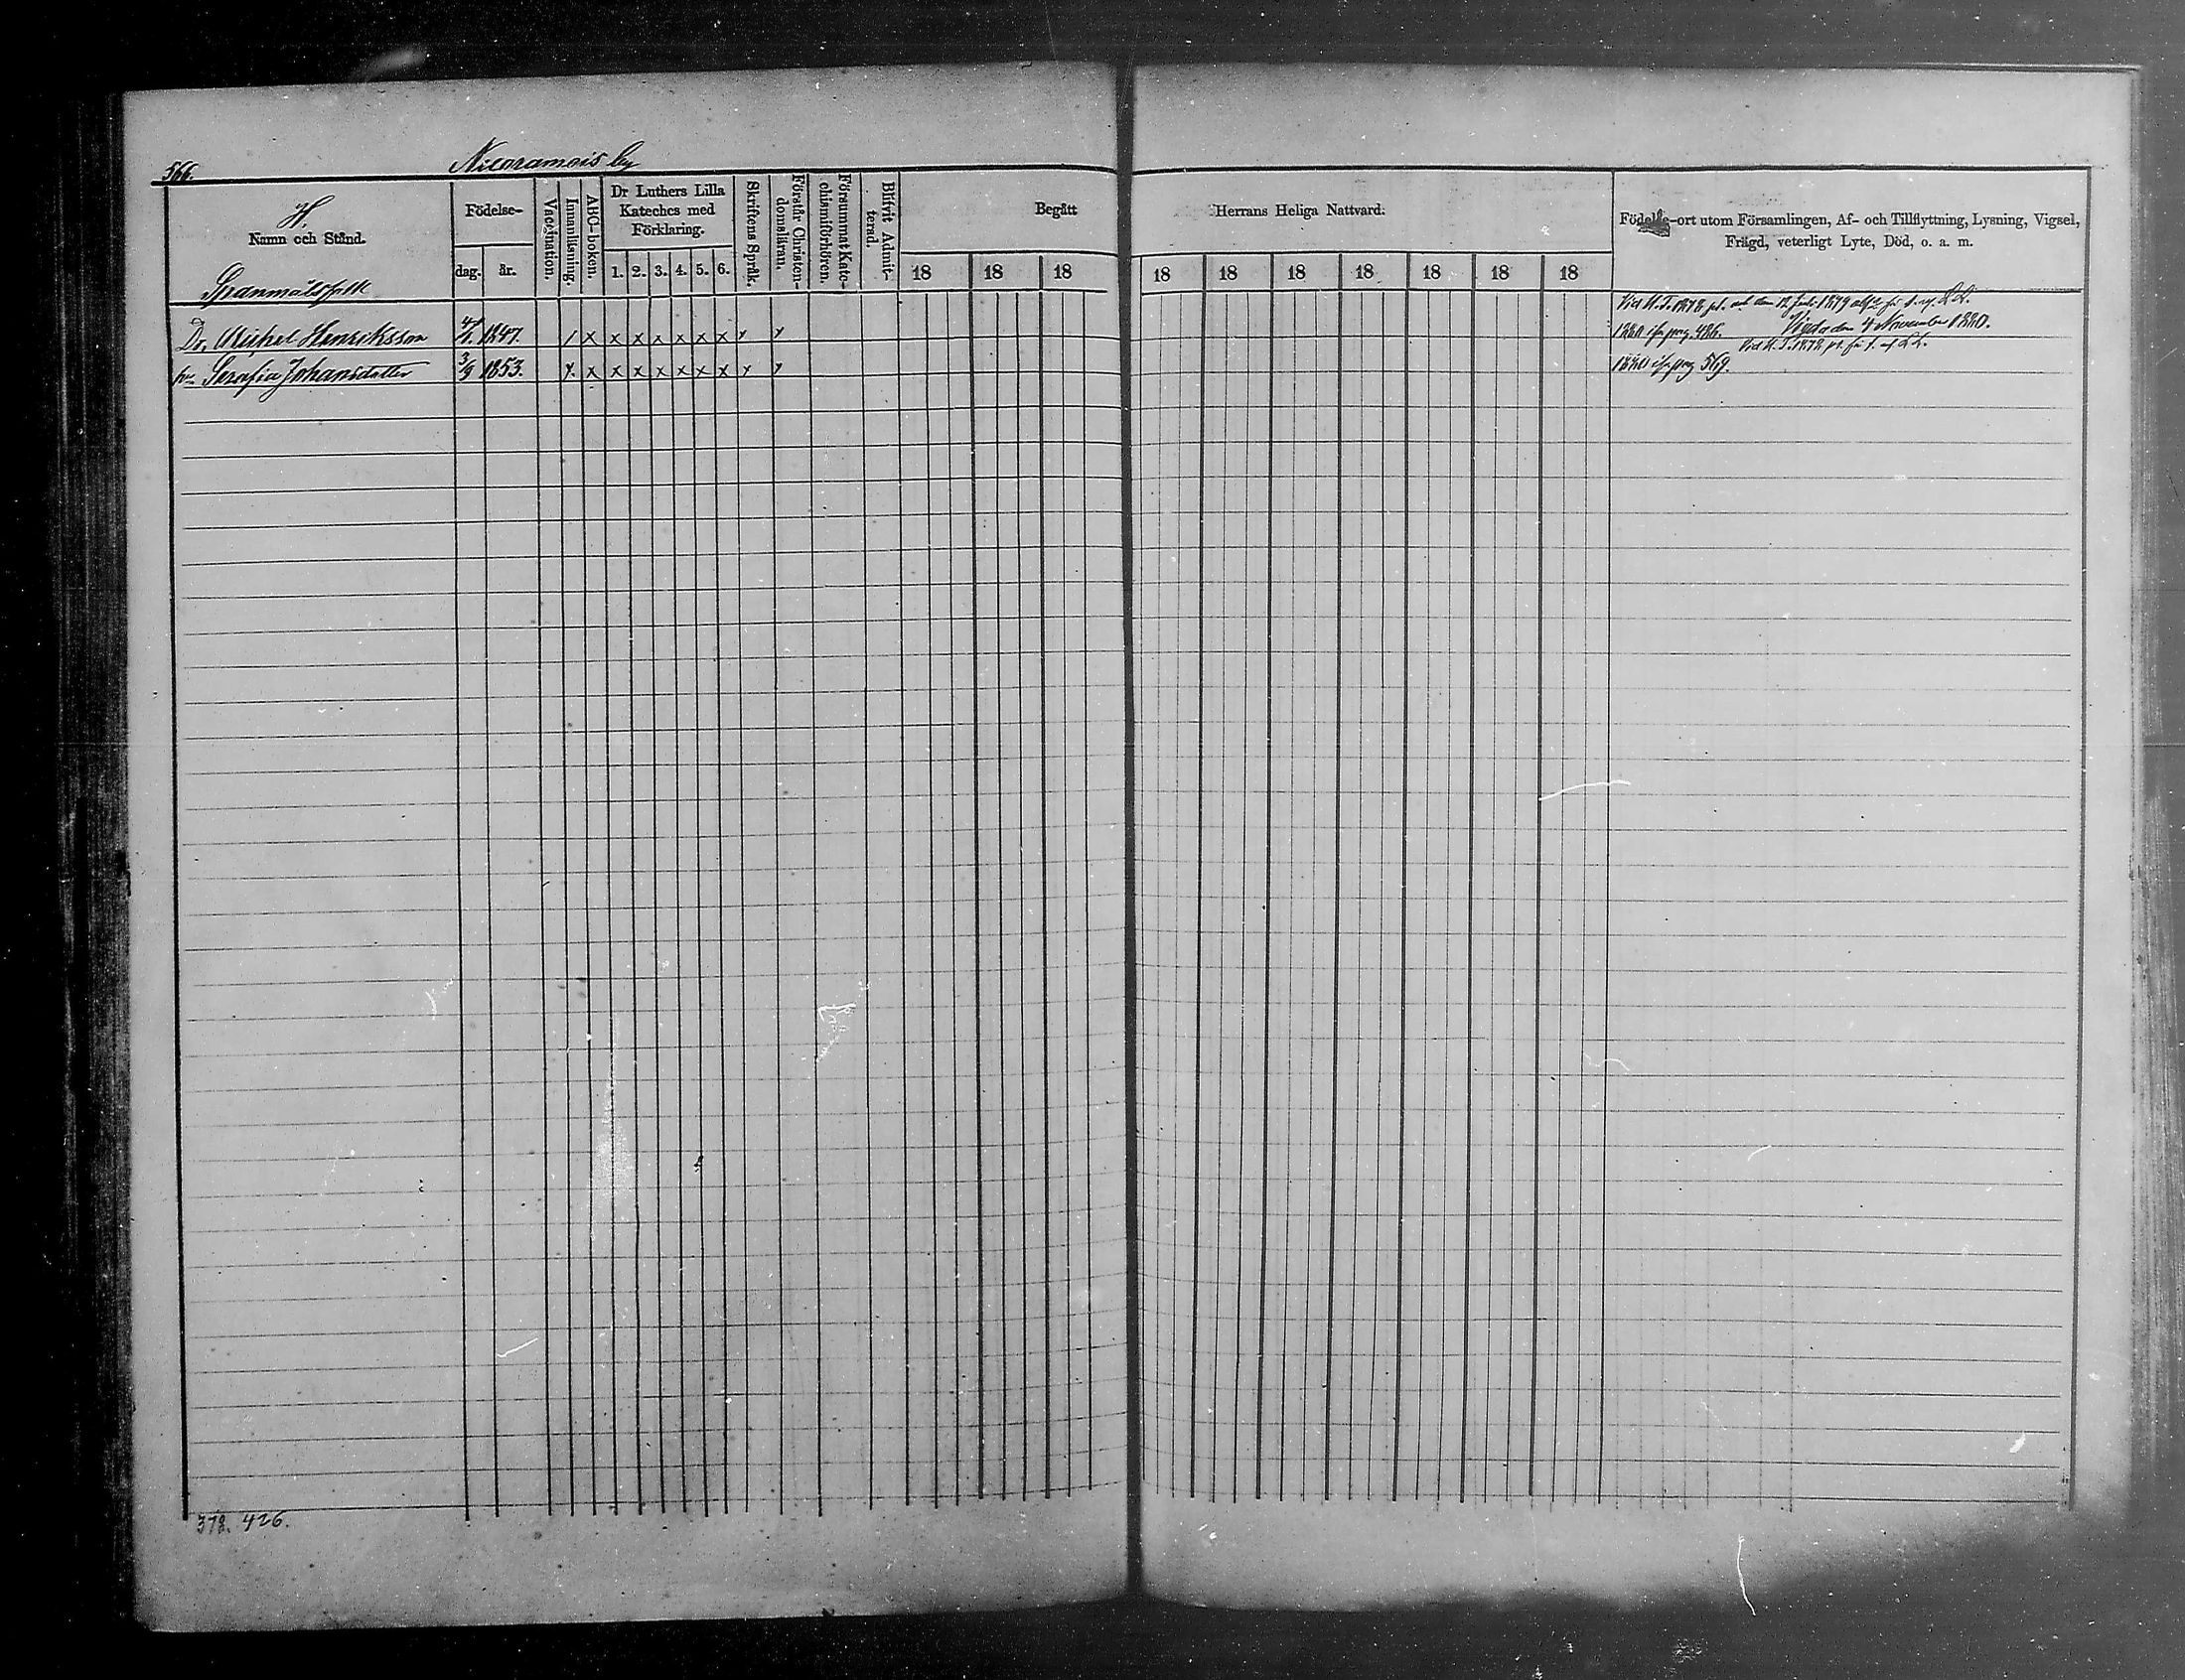 566.
by
H.
Namn och Stånd.
Födelse-
dag. år.
Vaccination.
Innanläsning.
ABC-boken.
Dr Luthers Lilla
Kateches med
Förklaring.
1. 2. 3. 4. 5. 6.
Skriftens Språk.
Förstår Christen-
domsläran.
Försummat Kate-
chismiförhören.
Blifvit Admit-
terad.
Begått
18 18 18
Herrans Heliga Nattvard.
18 18 18 18 18 18 18
Födelse-ort utom Församlingen, Af- och Tillflyttning, Lysning, Vigsel,
Frägd, veterligt Lyte, Död, o. a. m.
Spanmålsfolk
Dr. Michel Henriksson 1847. / x x x x x x x
1880 pag. 426. Vigda den 4 November 1880.
hu Serafia Johansdotter 3/9 1853. x x x x x x x x
1880 pag 569.
378. 426.